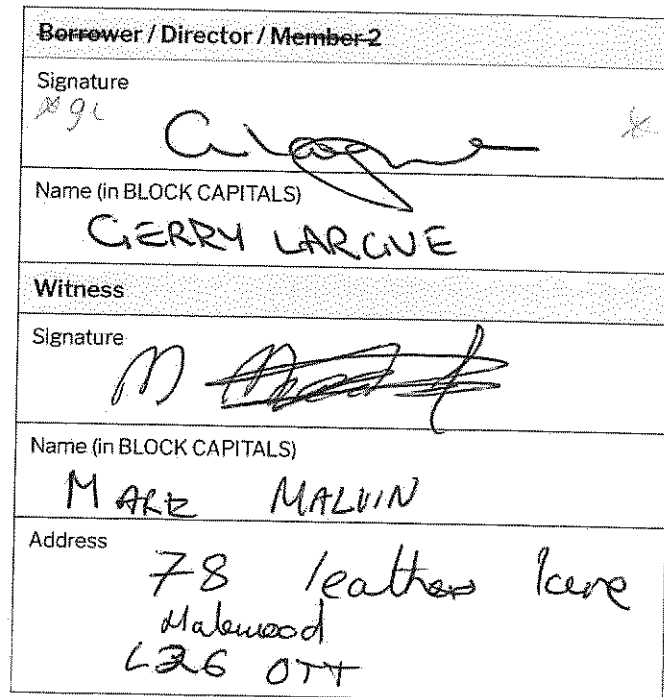 Borrower / Director / Member 2
Signature
Name (in BLOCK CAPITALS)
GERRY LARGUE
Witness
Signature
M
Name (in BLOCK CAPITALS)
MARK MALVIN
Address
78 leather lane
L26 0TT